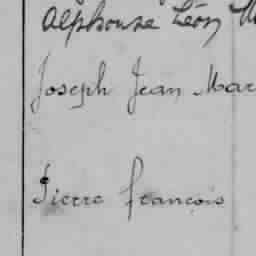 Alphonse Léon
Joseph Jean Mar
Pierre François